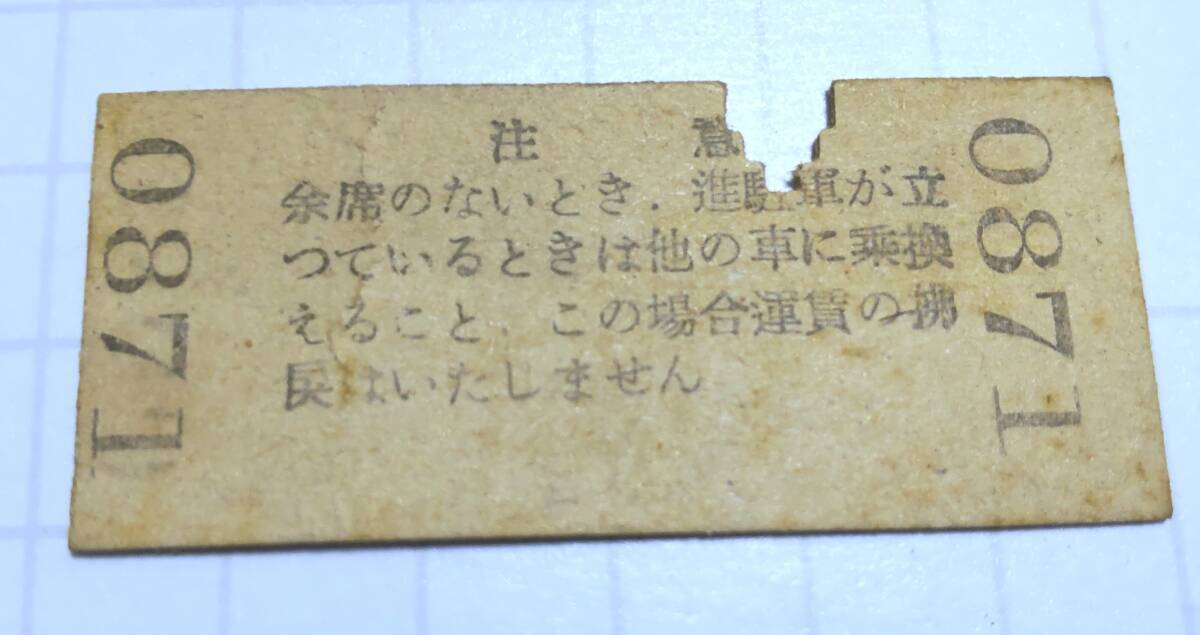 注意
余席のないとき、進駐軍が立
つているときは他の車に乗換
えること、この場合運賃の拂
戻はいたしません
0871
0871